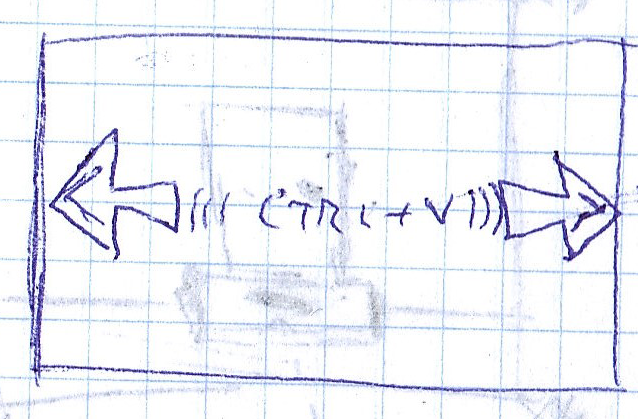 ((( CTRL+V )))